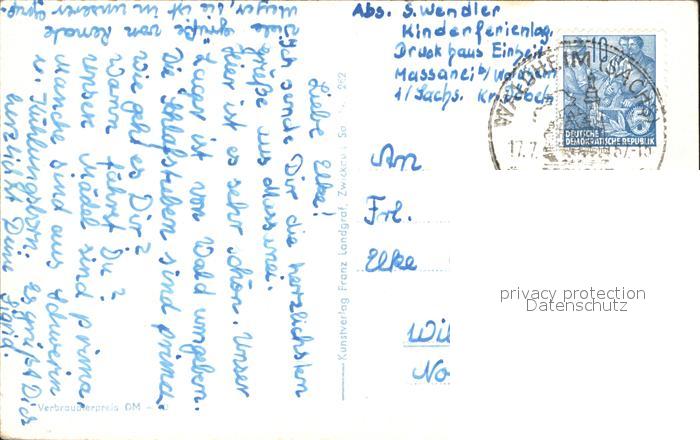 Abs. S. Wendler
Kinderferienlag.
Druckhaus Einheit
Massanei b/ Waldheim
1/Sachs.
WALDHEIM (SACHS)
10
17.7.57-15
5
DEUTSCHE
DEMOKRATISCHE REPUBLIK
An
Frl.
Elke
Wil
No
privacy protection
Downloads
Liebe Elke!
Ich sende Dir die herzlichsten
Grüße aus Massanei.
Hier ist es sehr schön. Unser
Lager ist von Wald umgeben.
Die Schlafstuben sind prima.
Wie geht es Dir?
Wann fährst Du?
Unsere Mädel sind prima.
Manche sind aus Schwerin
u. Kühlungsborn. Es grüßt Dich
herzlichst Deine Sigrid.
Viele Grüße von Renate
Meyer, sie ist in unserer Grup.
Kunstverlag Franz Landgraf, Zwickau Sa 262
Verbraucherpreis DM